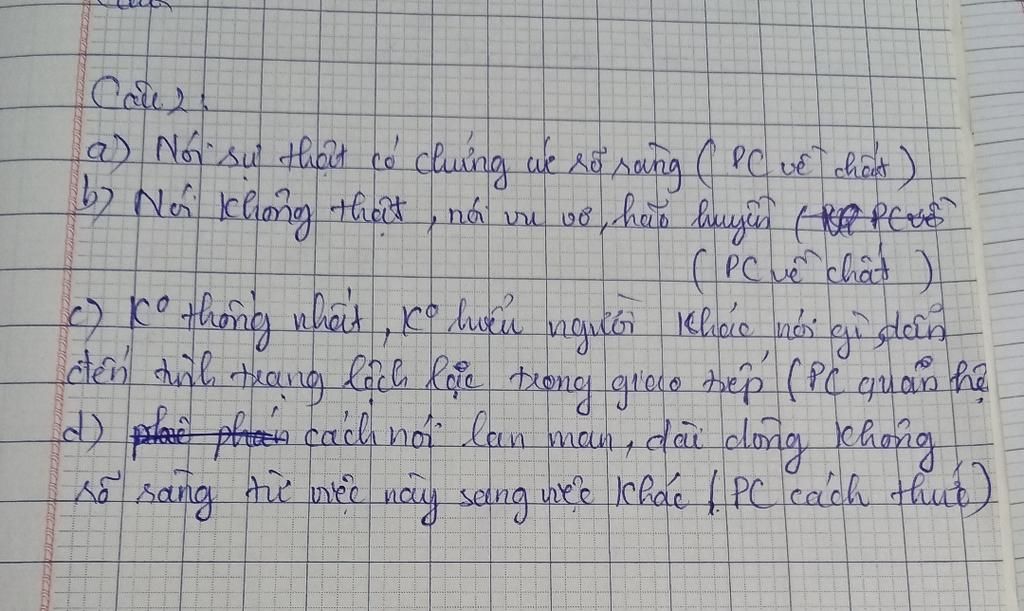 Câu 2:
a) Nói sự thật có chứng cứ rõ ràng ( PC về chất )
b) Nói không thật, nói vu vơ, hão huyền
( PC về chất )
c) K° thống nhất, K° hiểu người khác nói gì dẫn
đến tình trạng lệch lạc trong giao tiếp ( PC quan hệ
d) cách nói lan man, dài dòng không
rõ ràng từ việc này sang việc khác ( PC cách thức )